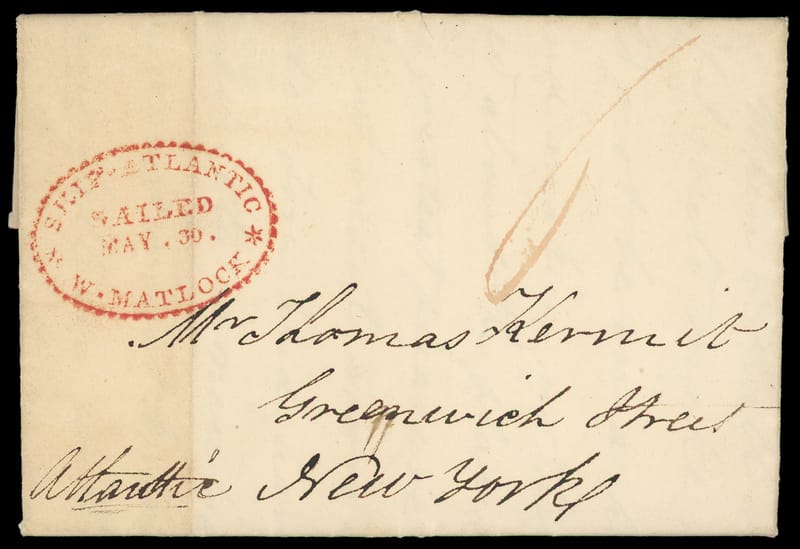 * SHIP · ATLANTIC *
SAILED
MAY . 30 .
W · MATLOCK
6
Mr Thomas Kermit
Greenwich Street
Atlantic New York